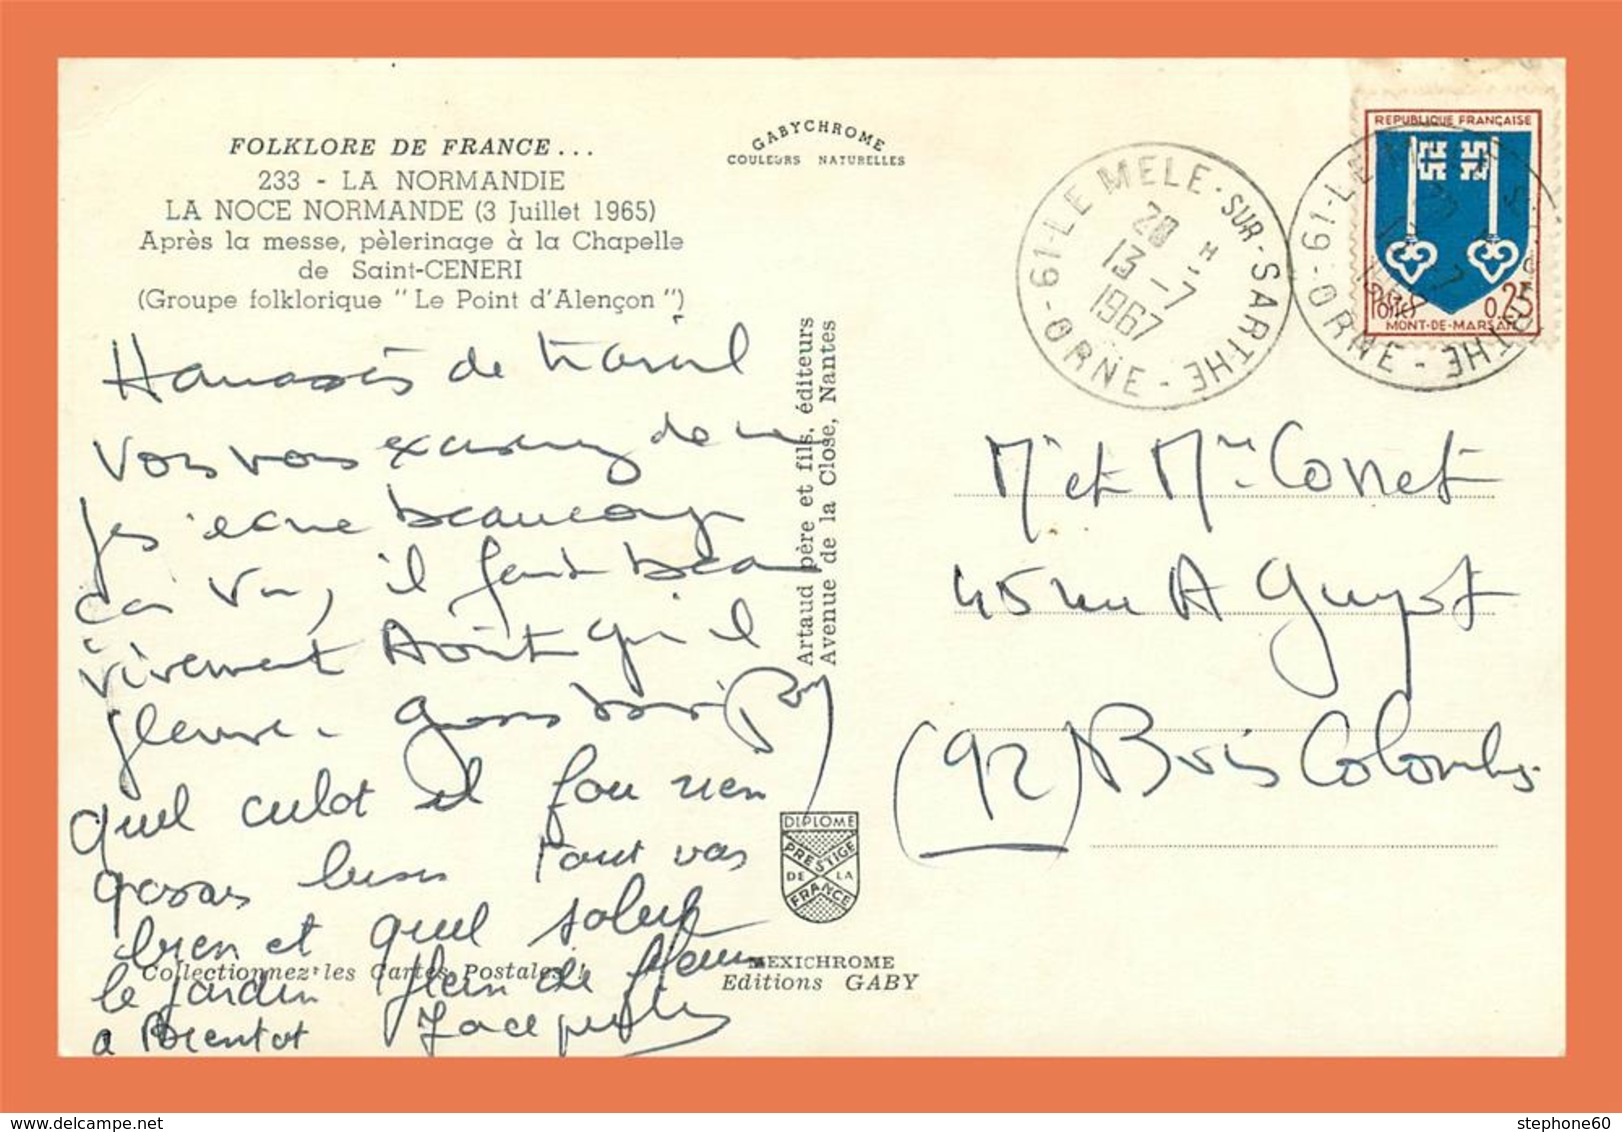 FOLKLORE DE FRANCE...
233 - LA NORMANDIE
LA NOCE NORMANDE (3 Juillet 1965)
Après la messe, pèlerinage à la Chapelle
de Saint-CENERI
(Groupe folklorique "Le Point d'Alençon")
GABYCHROME
COULEURS NATURELLES
61-LE MELE-SUR-SARTHE
20 H
13-7
1967
-ORNE-
REPUBLIQUE FRANÇAISE
Postes 0,25
MONT-DE-MARSAN
de travail
vous vous excuserez de ne
pas écrire beaucoup
car vu, il fait beau
vivement Août qu'il
pleuve. Gros baisers
quel culot il fou rien
grosses bises tout vas
bien et quel soleil
le jardin plein de fleurs
a Bientot Jacqueline
Artaud père et fils, éditeurs
Avenue de la Close, Nantes
Mr et Mme Connet
45 rue A Guyot
(92) Bois Colombes
DIPLOME
PRESTIGE
DE LA
FRANCE
Collectionnez les Cartes Postales !
MEXICHROME
Editions GABY
stephone60